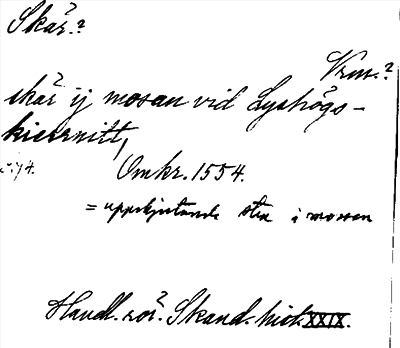 Skår.?
Vrm.?
skår ij mosan vid Lyshögs-
kiernitt,
s. 74.
Omkr. 1554.
= uppskjutande sten i mossen
Handl. rör. Skand. hist. XXIX.